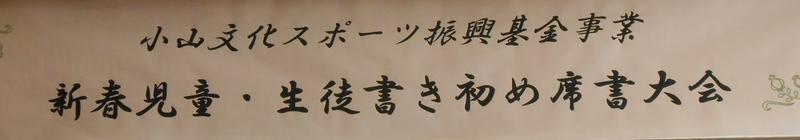 小山文化スポーツ振興基金事業
新春児童・生徒書き初め席書大会